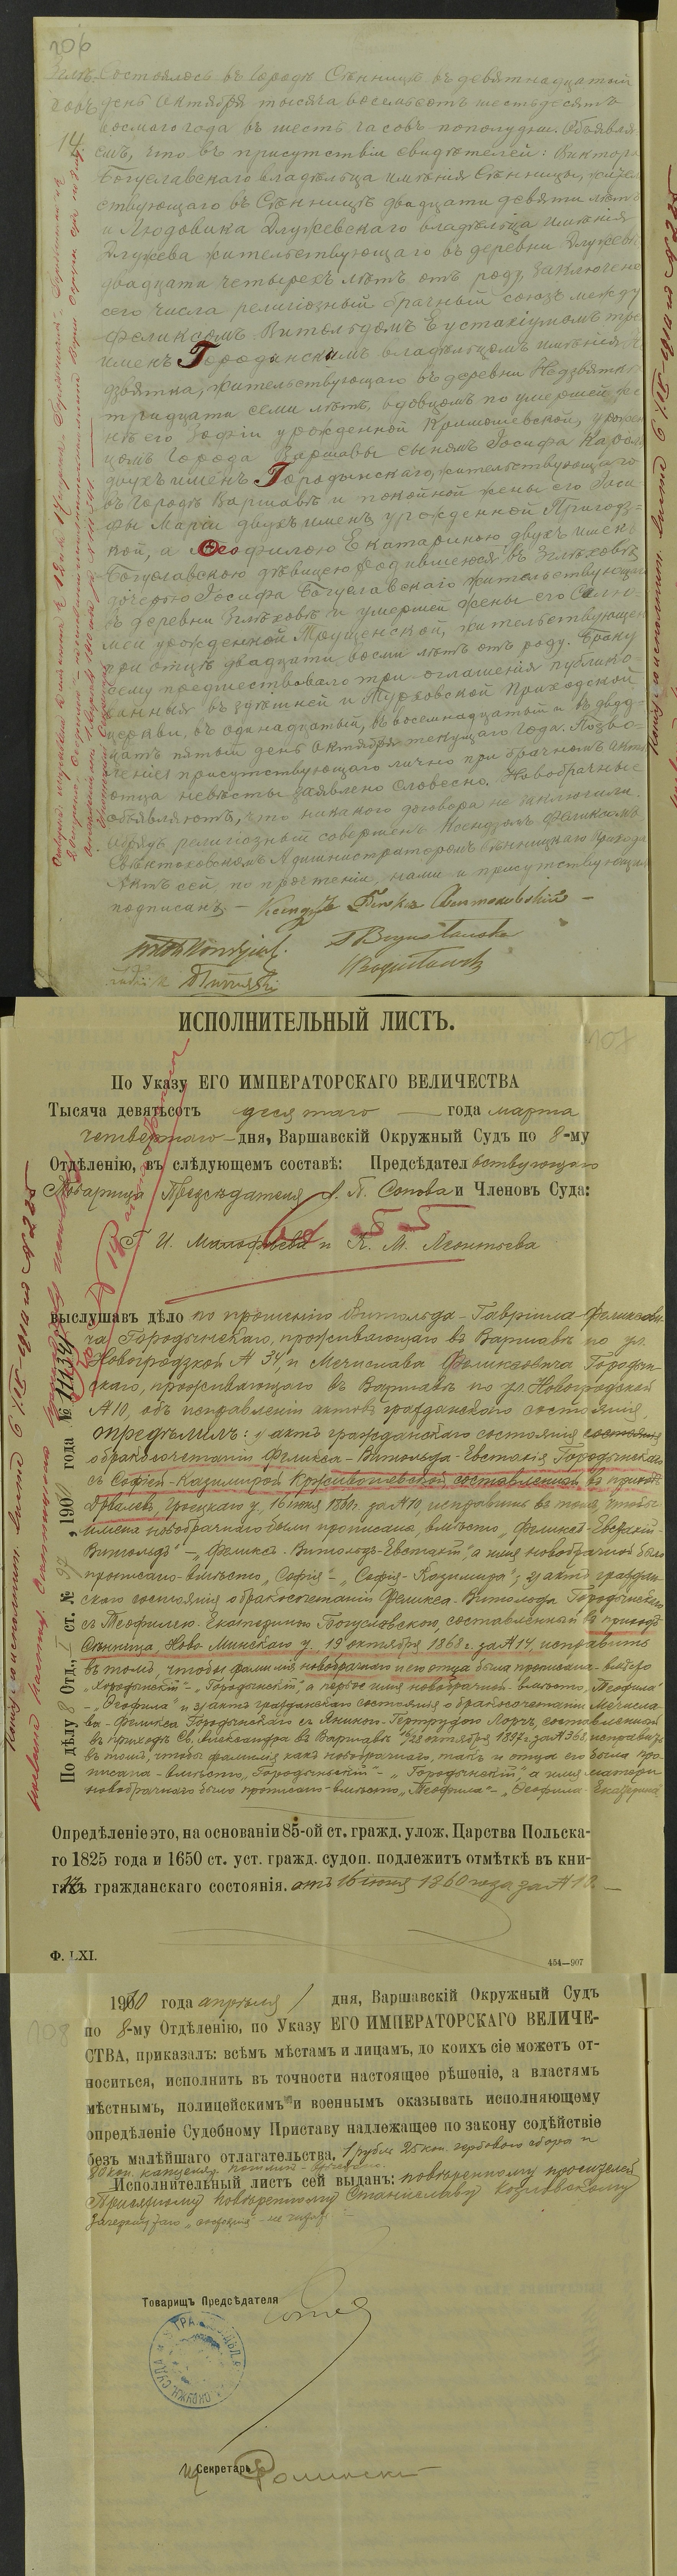 106
Состоялось въ Городѣ Сѣнницѣ въ девятнадцатый
день Октября тысяча восемьсотъ шестьдесятъ
восмаго года въ шесть часовъ пополудни. Объявля-
14.
емъ, что въ присутствіи свидѣтелей: Виктора
Богуславскаго владѣльца имѣнія Сѣнницы, жител
ствующаго въ Сѣнницѣ двадцати девяти лѣтъ
и Людовика Длужевскаго владѣльца имѣнія
Длужева жительствующаго въ деревни Длужевѣ
двадцати четырехъ лѣтъ отъ роду, заключенъ
сего числа религіозный брачный союзъ между
Феликсомъ Витольдомъ Еустахіушомъ трехъ
именъ Городынскимъ владѣльцомъ имѣнія
дзвятка, жительствующаго въ деревни Недзвятк
тридцати семи лѣтъ, вдовцомъ по умершей же
нѣ его Зофіи урожденной Кривошевской, урожен
цомъ Города Варшавы сыномъ Іосифа Кароля
двухъ именъ Городынскаго, жительствующаго
въ Городѣ Варшавѣ и покойной жены его Іози
фы Маріи двухъ именъ урожденной Пригодз-
кой, а Ѳеофилою Екатериною двухъ именъ
Богуславскою дѣвицею родившеюся въ Зглѣховѣ
дочерью Іосифа Богуславскаго жительствующаго
въ деревни Зглѣховѣ и умершей жены его
урожденной жительствующею
при отцѣ двадцати восми лѣтъ отъ роду. Браку
сему предшествовало три оглашенія публико-
ванныя въ здѣшней и Приходской
церкви, въ одинадцатый, въ восемнадцатый и въ двад-
цать пятый день Октября текущаго года. Позво-
леніе присутствующаго лично при брачномъ актѣ
отца невѣсты заявлено словесно. Новобрачные
объявляютъ, что никакого договора не заключили.
Обрядъ религіозный совершенъ Ксендзомъ Феликсомъ
Свѣнтоховскомъ Администраторомъ Сѣнницкаго прихода
Актъ сей по прочтеніи, нами и присутствующими
подписанъ. — Ксендзъ
107
ИСПОЛНИТЕЛЬНЫЙ ЛИСТЪ.
По Указу ЕГО ИМПЕРАТОРСКАГО ВЕЛИЧЕСТВА
Тысяча девятьсотъ десятаго — года марта
четвертаго — дня, Варшавскій Окружный Судъ по 8-му
Отдѣленію, въ слѣдующемъ составѣ: Предсѣдательствующаго
Товарища Предсѣдателя А. П. Сопова и Членовъ Суда:
Г. И. и К. М. Леонтьева
выслушавъ дѣло по прошенію Витольда-Гавріила Феликсови-
ча Городынскаго, проживающаго въ Варшавѣ по ул.
Новогродзкой № 34, и Мечислава Феликсовича Городын-
скаго, проживающаго въ Варшавѣ по ул. Новогродзкой
№ 10, объ исправленіи актовъ гражданскаго состоянія,
опредѣлилъ: 1) актъ гражданскаго состоянія состоянія
о бракосочетаніи Феликса-Витольда-Евстахія Городынскаго
съ Софіей-Казимирой Кривошевской, составленный въ приходѣ
Дрвалевъ, Гроецкаго у., 16 іюня 1860 г. за № 10, исправить въ томъ, чтобы
имена новобрачнаго были прописаны, вмѣсто „Феликсъ-Евстахій-
Витольдъ“ —, „Феликсъ-Витольдъ-Евстахій“, а имя новобрачной было
прописано-вмѣсто „Софія“ — „Софія-Казимира“; 2) актъ граждан-
скаго состоянія о бракосочетаніи Феликса-Витольда Городынскаго
съ Теофилею-Екатериною Богуславскою, составленный въ приходѣ
Сѣнница, Ново-Минскаго у. 19 октября 1868 г. за № 14, исправить
въ томъ, чтобы фамилія новобрачнаго и его отца была прописана-вмѣсто
— „Городынскій“, а первое имя новобрачной-вмѣсто „Теофила“
— „Ѳеофила“ и 3) актъ гражданскаго состоянія о бракосочетаніи Мечисла-
ва-Феликса Городынскаго съ Яниною-Гертрудою Лорчъ, составленный
въ приходѣ Св. Александра въ Варшавѣ 16/28 октября 1897 г. за № 368, исправить
въ томъ, чтобы фамилія какъ новобрачнаго, такъ и отца его была про-
писана-вмѣсто „Городыньскій“ — „Городынскій“, а имя матери
новобрачнаго было прописано-вмѣсто „Теофила“ — „Ѳеофила-Екатерина“
По дѣлу 8 Отд., I ст. № 97, 1910 года №
Опредѣленіе это, на основаніи 85-ой ст. гражд. улож. Царства Польска-
го 1825 года и 1650 ст. уст. гражд. судоп. подлежитъ отмѣткѣ въ кни-
гахъ гражданскаго состоянія. отъ 16 іюня 1860 года за № 10. —
Ф. LXI.
454—907
108
1910 года апрѣля 1 дня, Варшавскій Окружный Судъ
по 8-му Отдѣленію, по Указу ЕГО ИМПЕРАТОРСКАГО ВЕЛИЧЕ-
СТВА, приказалъ: всѣмъ мѣстамъ и лицамъ, до коихъ сіе можетъ от-
носиться, исполнить въ точности настоящее рѣшеніе, а властямъ
мѣстнымъ, полицейскимъ и военнымъ оказывать исполняющему
опредѣленіе Судебному Приставу надлежащее по закону содѣйствіе
безъ малѣйшаго отлагательства. 1 рубль 25 коп. гербоваго сбора и
80 коп. канцеляр. пошлины
Исполнительный листъ сей выданъ: повѣренному просителей
Присяжному Повѣренному Станиславу Козловскому
Зачеркнутаго „состоянія“ — не читать
Товарищъ Предсѣдателя
Секретарь